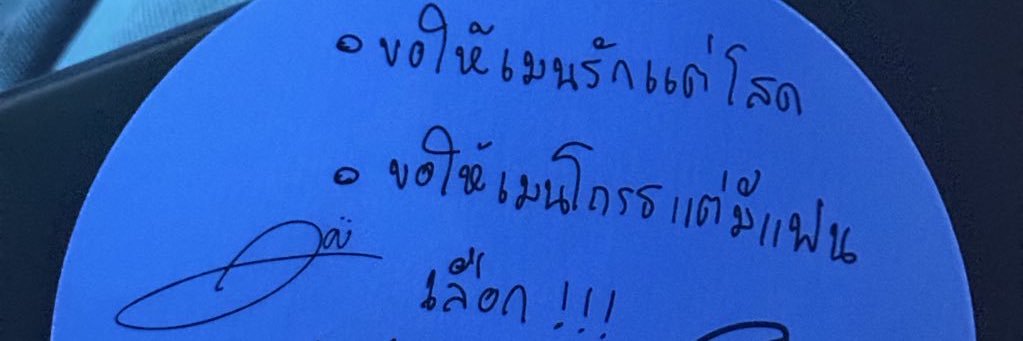 • ขอให้เมนรักแต่โสด
• ขอให้เมนโกรธแต่มีแฟน
เลือก !!!